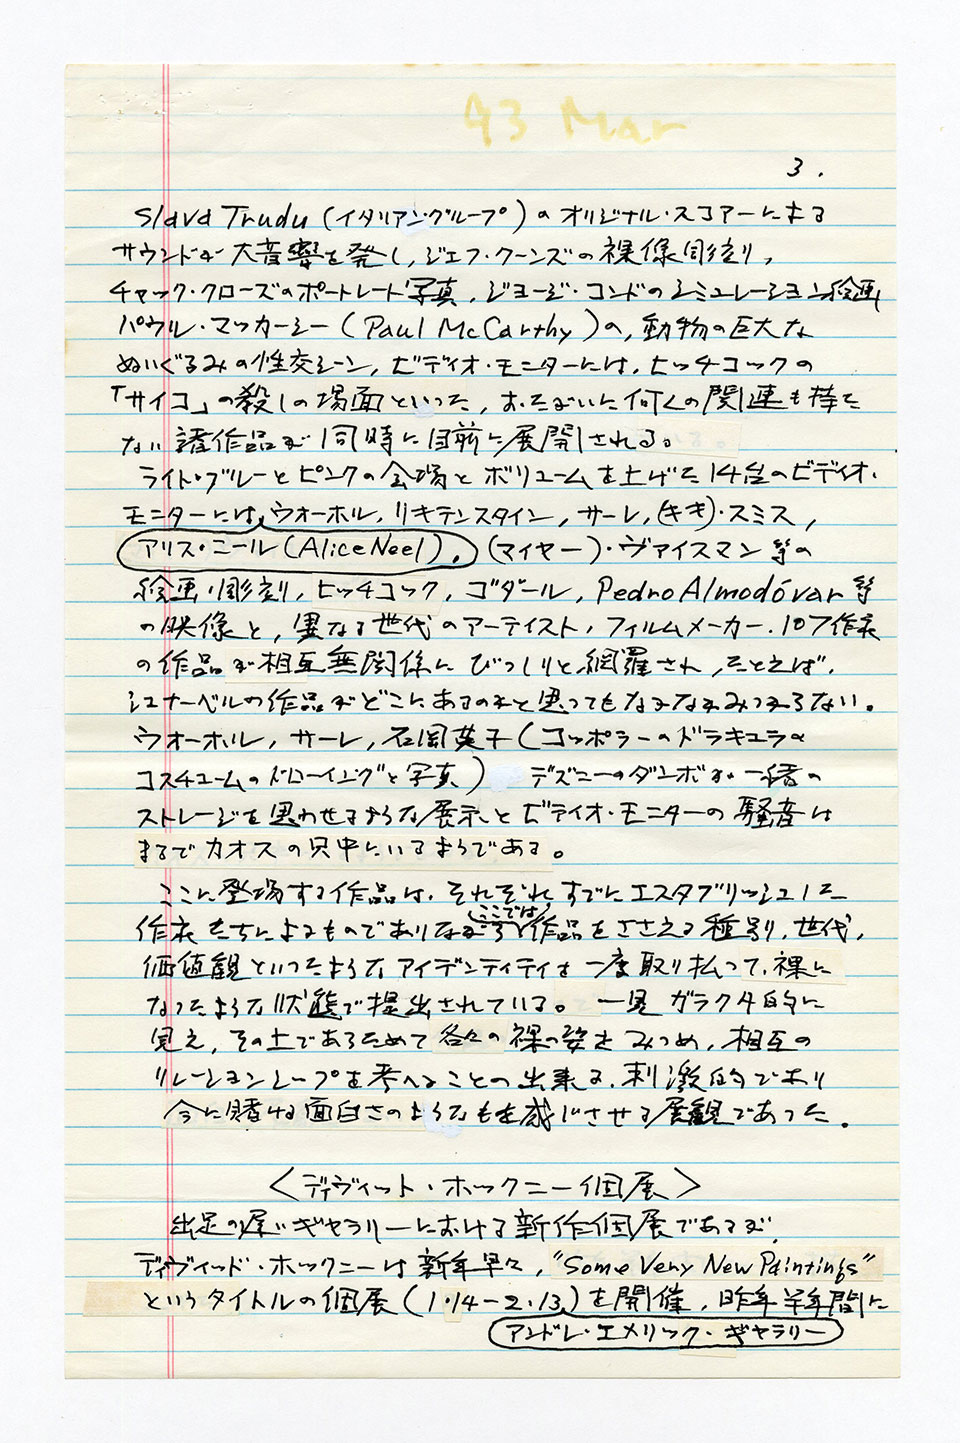 93 Mar
3.
Slava Trudu (イタリアングループ) の オリジナル・スコアーによる
サウンドが大音響を発し, ジェフ・クーンズの裸像彫刻,
チャック・クローズのポートレート写真, ジョージ・コンドのシミュレーション絵画
パウル・マッカーシー (Paul McCarthy) の, 動物の巨大な
ぬいぐるみの性交シーン, ビデイオ・モニターには, ヒッチコックの
「サイコ」の殺しの場面といった, おたがいに何くの関連も持た
ない諸作品が同時に目前に展開される。
ライト・ブルーとピンクの会場とボリュームを上げた14台のビデイオ・
モニターには, ウォーホル, リキテンスタイン, サーレ, (キキ)・スミス,
アリス・ニール (Alice Neel), (マイヤー)・ヴァイスマン等の
絵画・彫刻, ヒッチコック, ゴダール, Pedro Almodóvar等
の映像と, 異なる世代のアーティスト, フィルムメーカー. 107作家
の作品が相互無関係にびっしりと網羅され, たとえば,
シュナーベルの作品がどこにあるのかと思ってもなかなかみつからない。
ウォーホル, サーレ, 石岡英子 (コッポラーのドラキュラの
コスチュームのドローイングと写真) デズニーのダンボが一緒の
ストレージを思わせるような展示とビデイオ・モニターの騒音は
まるでカオスの只中にいるようである。
ここに登場する作品は, それぞれすでにエスタブリッシュした
作家たちによるものでありながら, ここでは, 作品をささえる種別, 世代,
価値観といったようなアイデンティティを一度取り払って, 裸に
なったような状態で提出されている。 一見ガラクタ的に
見え, その上であらためて各々の裸の姿をみつめ, 相互の
リレーションシープを考へることの出来る, 刺激的であり
今に賭ける面白さのようなもを感じさせる展観であった.
<ディヴィット・ホックニー個展>
出足の遅いギャラリーにおける新作個展であるが,
ディヴィッド・ホックニーは新年早々, "Some Very New Paintings"
というタイトルの個展 (1・14-2・13) を開催, 昨年半年間に
アンドレ・エメリック・ギャラリー